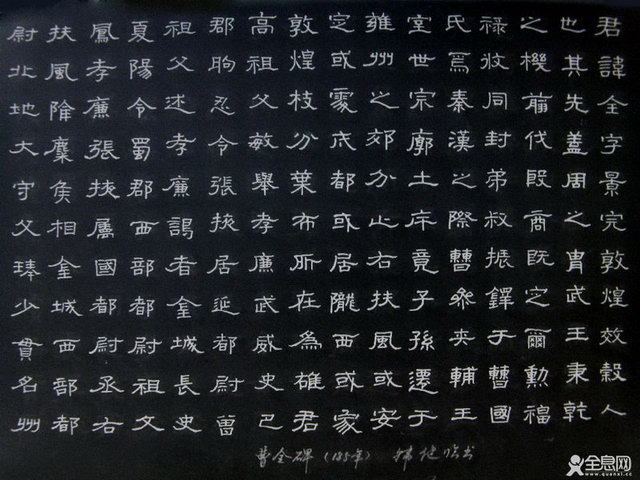 君諱全字景完敦煌效穀人
也其先蓋周之冑武王秉乾
之機翦代殷商既定爾勳福
祿攸同封弟叔振鐸于曹國
氏焉秦漢之際曹參夾輔王
室世宗廓土斥竟子孫遷于
雍州之郊分止右扶風或安
定或處武都或居隴西或家
敦煌枝分葉布所在為雄君
高祖父敏舉孝廉武威史巴
郡朐忍令張掖居延都尉曾
祖父述孝廉謁者金城長史
夏陽令蜀郡西部都尉祖父
鳳孝廉張掖屬國都尉丞右
扶風隃麋侯相金城西部都
尉北地大守父琫少貫名州
曹全碑(185年) 临书
全息网
www.quanxi.cc